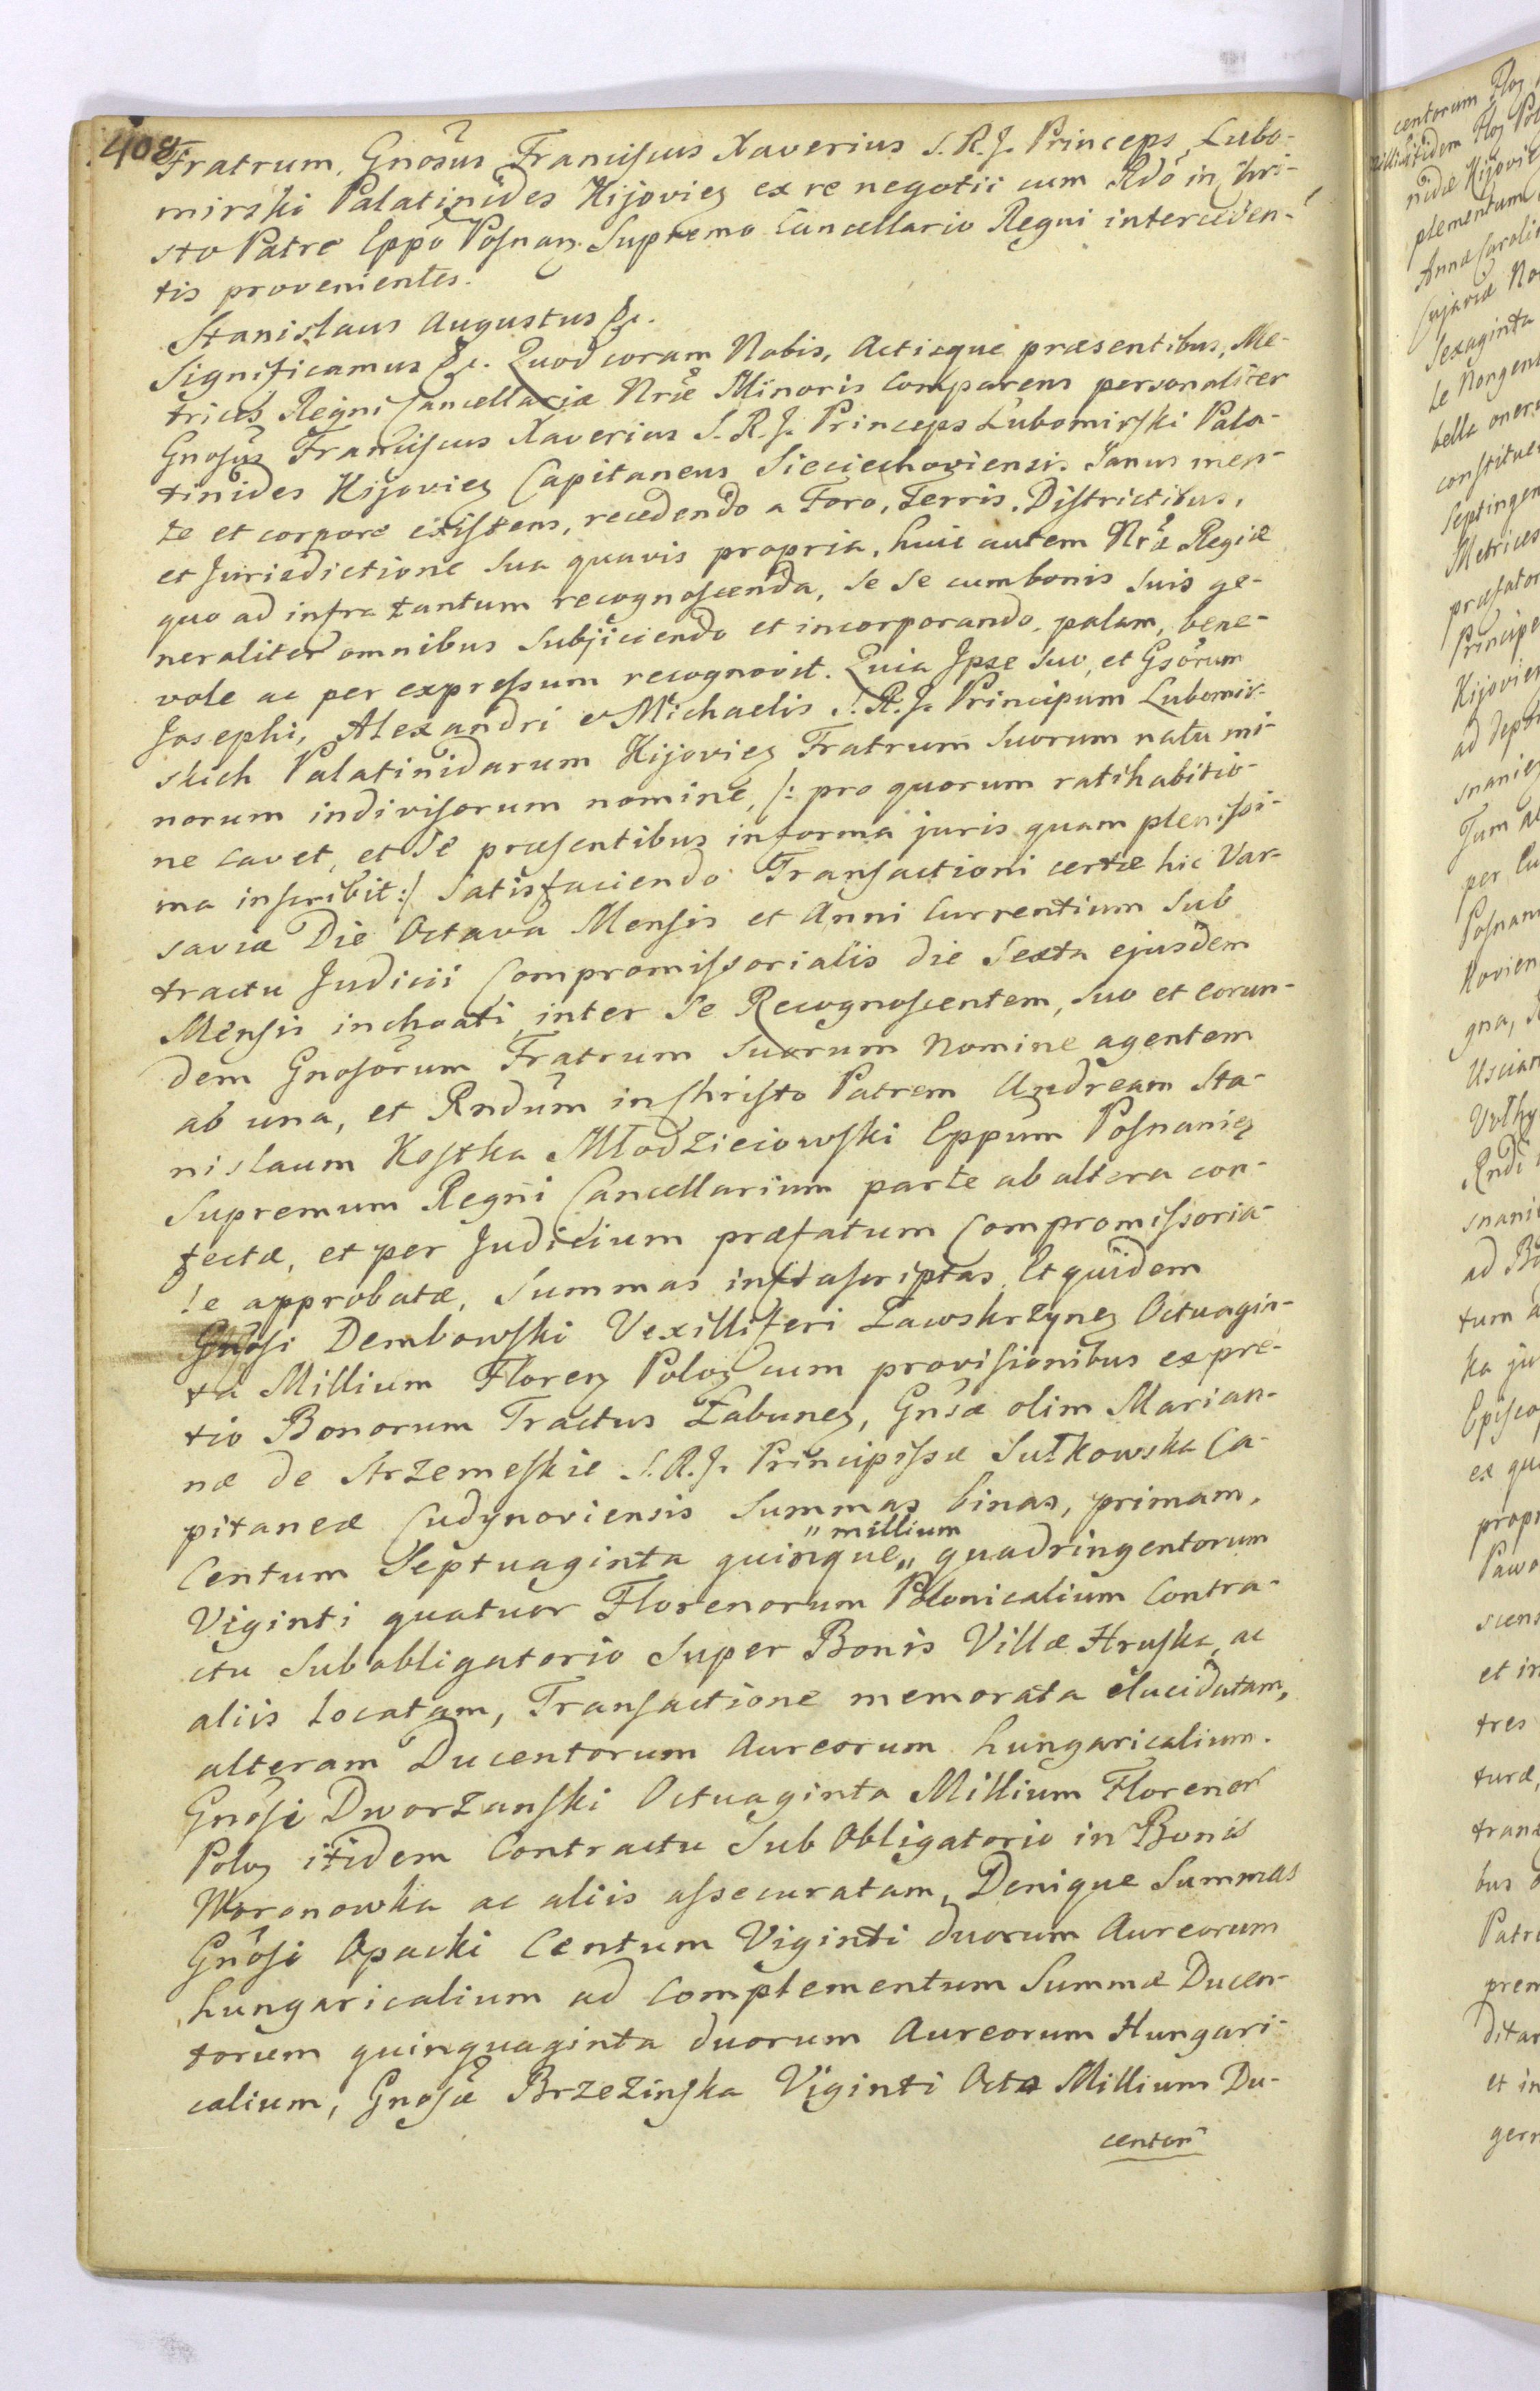 408.
Fratrum, Gnosus Franciscus Xaverius S. R. J. Princeps Lubo-
mirski Palatinides Kijoviez ex re negotii cum Rdo in Chri-
sto Patre Eppo Posnan. Supremo Cancellario Regni interceden-
tis provenientes.
Stanislaus Augustus &c.
Significamus &c. Quod coram Nobis, Actisque præsentibus, Me-
trices Regni Cancellariæ Nræ Minoris Comparens personaliter
Gnosus Franciscus Xaverius S. R. J. Princeps Lubomirski Pala-
tinides Kijoviez Capitaneus Sieciechoviensis Sanus men-
te et corpore existens, recedendo a Foro, Terris, Districtibus,
et Jurisdictione Sua quavis propria, huic autem Nræ Regiæ
quo ad infra tantum recognoscenda, se se cum bonis suis ge-
neraliter omnibus Subjiciendo et incorporando, palam, bene-
vole ac per expressum recognovit. Quia Ipse Suo, et Gsorum
Josephi, Alexandri & Michaelis S. R. J. Principum Lubomir-
skich Palatinidarum Kijoviez Fratrum Suorum natu mi-
norum indivisorum nomine, /: pro quorum ratihabitio-
ne cavet, et Se præsentibus in forma juris quam plenissi-
ma inscribit :/ Satisfaciendo Transactioni certæ hic Var-
saviæ Die Octava Mensis et Anni Currentium Sub
tractu Judicii Compromissorialis die Sexta ejusdem
Mensis inchoati, inter Se Recognoscentem, Suo et eorun-
dem Gnosorum Fratrum Suorum Nomine agentem
ab una, et Rndum in Christo Patrem Andream Sta-
nislaum Kostka Młodzieiowski Eppum Posnaniez
Supremum Regni Cancellarium parte ab altera con-
fectæ, et per Judicium præfatum Compromissoria-
le approbatæ, Summas infrascriptas, Et quidem
Gnosi Dembowski Vexilliferi Zawskrzynez Octuagin-
ta Millium Florez Poloz cum provisionibus ex pre-
tio Bonorum Tractus Łabunez, Gnsæ olim Marian-
næ de Strzemeskie S. R. J. Principissæ Sułkowska Ca-
pitaneæ Cudynoviensis Summas binas, primam,
"millium
Centum Septuaginta quinque" quadringentorum
Viginti quatuor Florenorum Polonicalium Contra-
ctu Subobligatorio Super Bonis Villæ Hruska, ac
aliis Locatam, Transactione memorata elucidatam,
alteram Ducentorum Aureorum hungaricalium.
Gnosi Dworzanski Octuaginta Millium Florenor
Poloz itidem Contractu Sub Obligatorio in Bonis
Woronowka ac aliis assecuratam, Denique Summas
Gnosi Opacki Centum Viginti duorum Aureorum
hungaricalium ad Complementum Summæ Ducen-
torum quinquaginta duorum Aureorum Hungari-
calium, Gnosæ Brzezinska Viginti Octo Millium Du-
centor